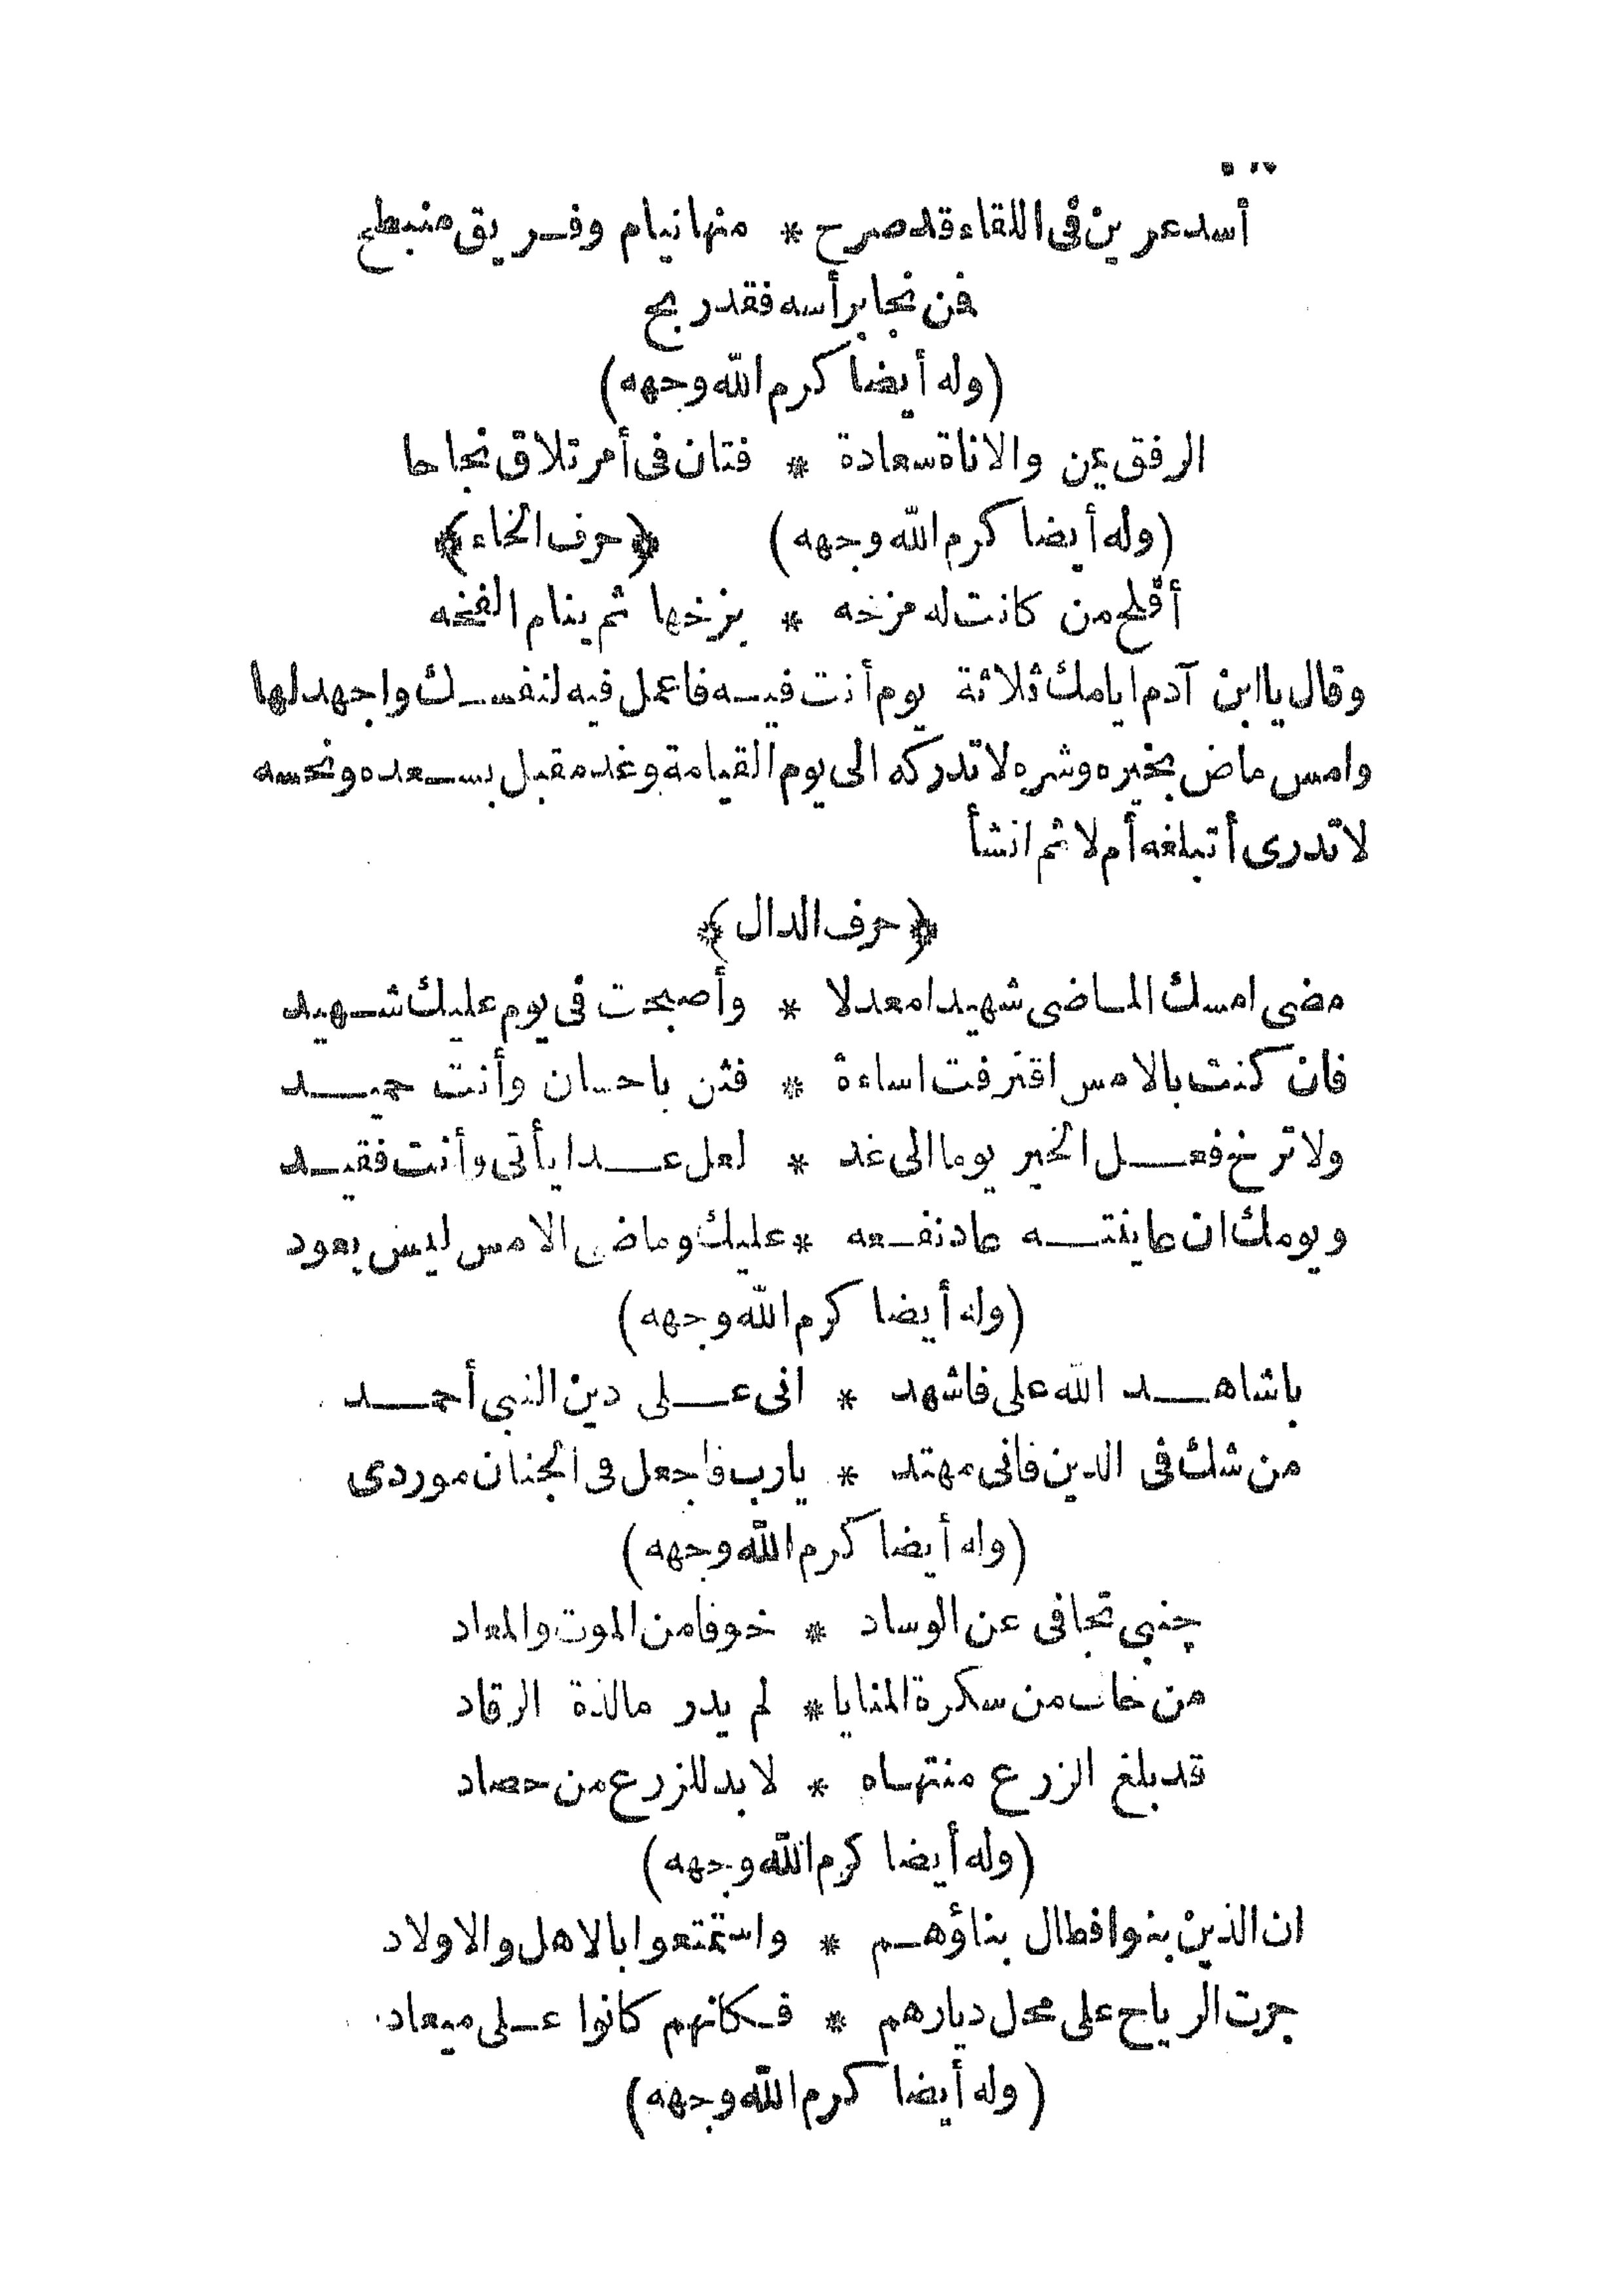 أسد عرين فى اللقاء قد صرح * منها نيام وفريق منبطح
فمن نجا برأسه فقد ربح
(وله أيضا كرم الله وجهه)
الرفق يمن والاناة سعادة * فتان فى أمر تلاق نجاحا
(وله أيضا كرم الله وجهه) ﴿حرف الخاء﴾
أفلح من كانت له مزخه * يزخها ثم ينام الفخه
وقال ياابن آدم ايامك ثلاثة يوم أنت فيه فاعمل فيه لنفسك واجهد لها
وامس ماض بخيره وشره لا تدركه الى يوم القيامة وغد مقبل بسعده ونحسه
لا تدرى أتبلغه أم لا ثم انشأ
﴿حرف الدال﴾
مضى امسك الماضى شهيدا معدلا * وأصبحت فى يوم عليك شهيد
فان كنت بالامس اقترفت اساءة * فثن باحسان وأنت حميد
ولا ترخ فعل الخير يوما الى غد * لعل عدا يأتى وأنت فقيد
ويومك ان عاينته عاد نفعه * عليك وماضى الامس ليس يعود
(وله أيضا كرم الله وجهه)
ياشاهد الله على فاشهد * انى على دين النبي أحمد
من شك فى الدين فانى مهتد * يارب فاجعل فى الجنان موردى
(وله أيضا كرم الله وجهه)
جنبي تجافى عن الوساد * خوفا من الموت والمعاد
من خاف من سكرة المنايا * لم يدر مالذة الرقاد
قد بلغ الزرع منتهاه * لا بد للزرع من حصاد
(وله أيضا كرم الله وجهه)
ان الذين بنوا فطال بناؤهم * واستمتعوا بالاهل والاولاد
جرت الرياح على محل ديارهم * فكانهم كانوا على ميعاد
(وله أيضا كرم الله وجهه)